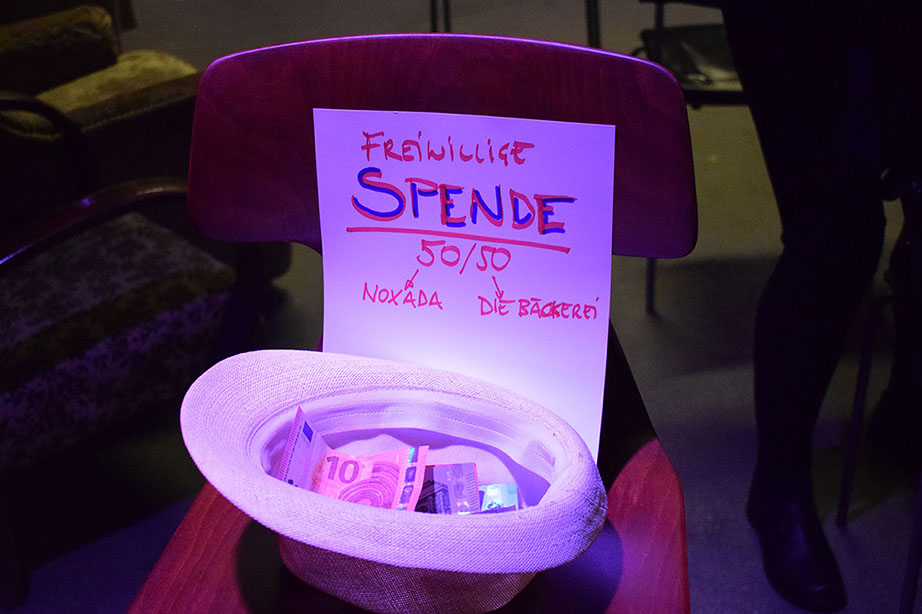 FREIWILLIGE
SPENDE
50/50
NOXADA DIE BÄCKEREI
10